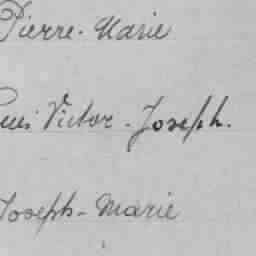 Pierre-Marie
Victor-Joseph.
Joseph-Marie